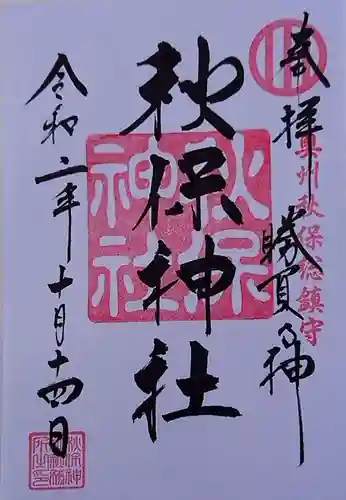 奉拝
奥州秋保総鎮守
勝負の神
秋保神社
秋保神社
令和二年十月十四日